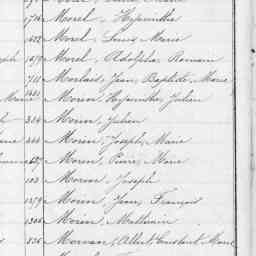 1716 Morel, Hyacinthe
1422 Morel, Louis Marie
1679 Morel, Adolphe Romain
1711 Morlais, Jean Baptiste Marie
Marie 1421 Morin Hyacinthe Julien
324 Morin, Julien
444 Morin, Joseph Marie
687 Morin, Pierre Marie
103 Morin, Joseph
1279 Morin, Jean François
1305 Morin, Mathurin
835 Morvan, Albert Constant Marie